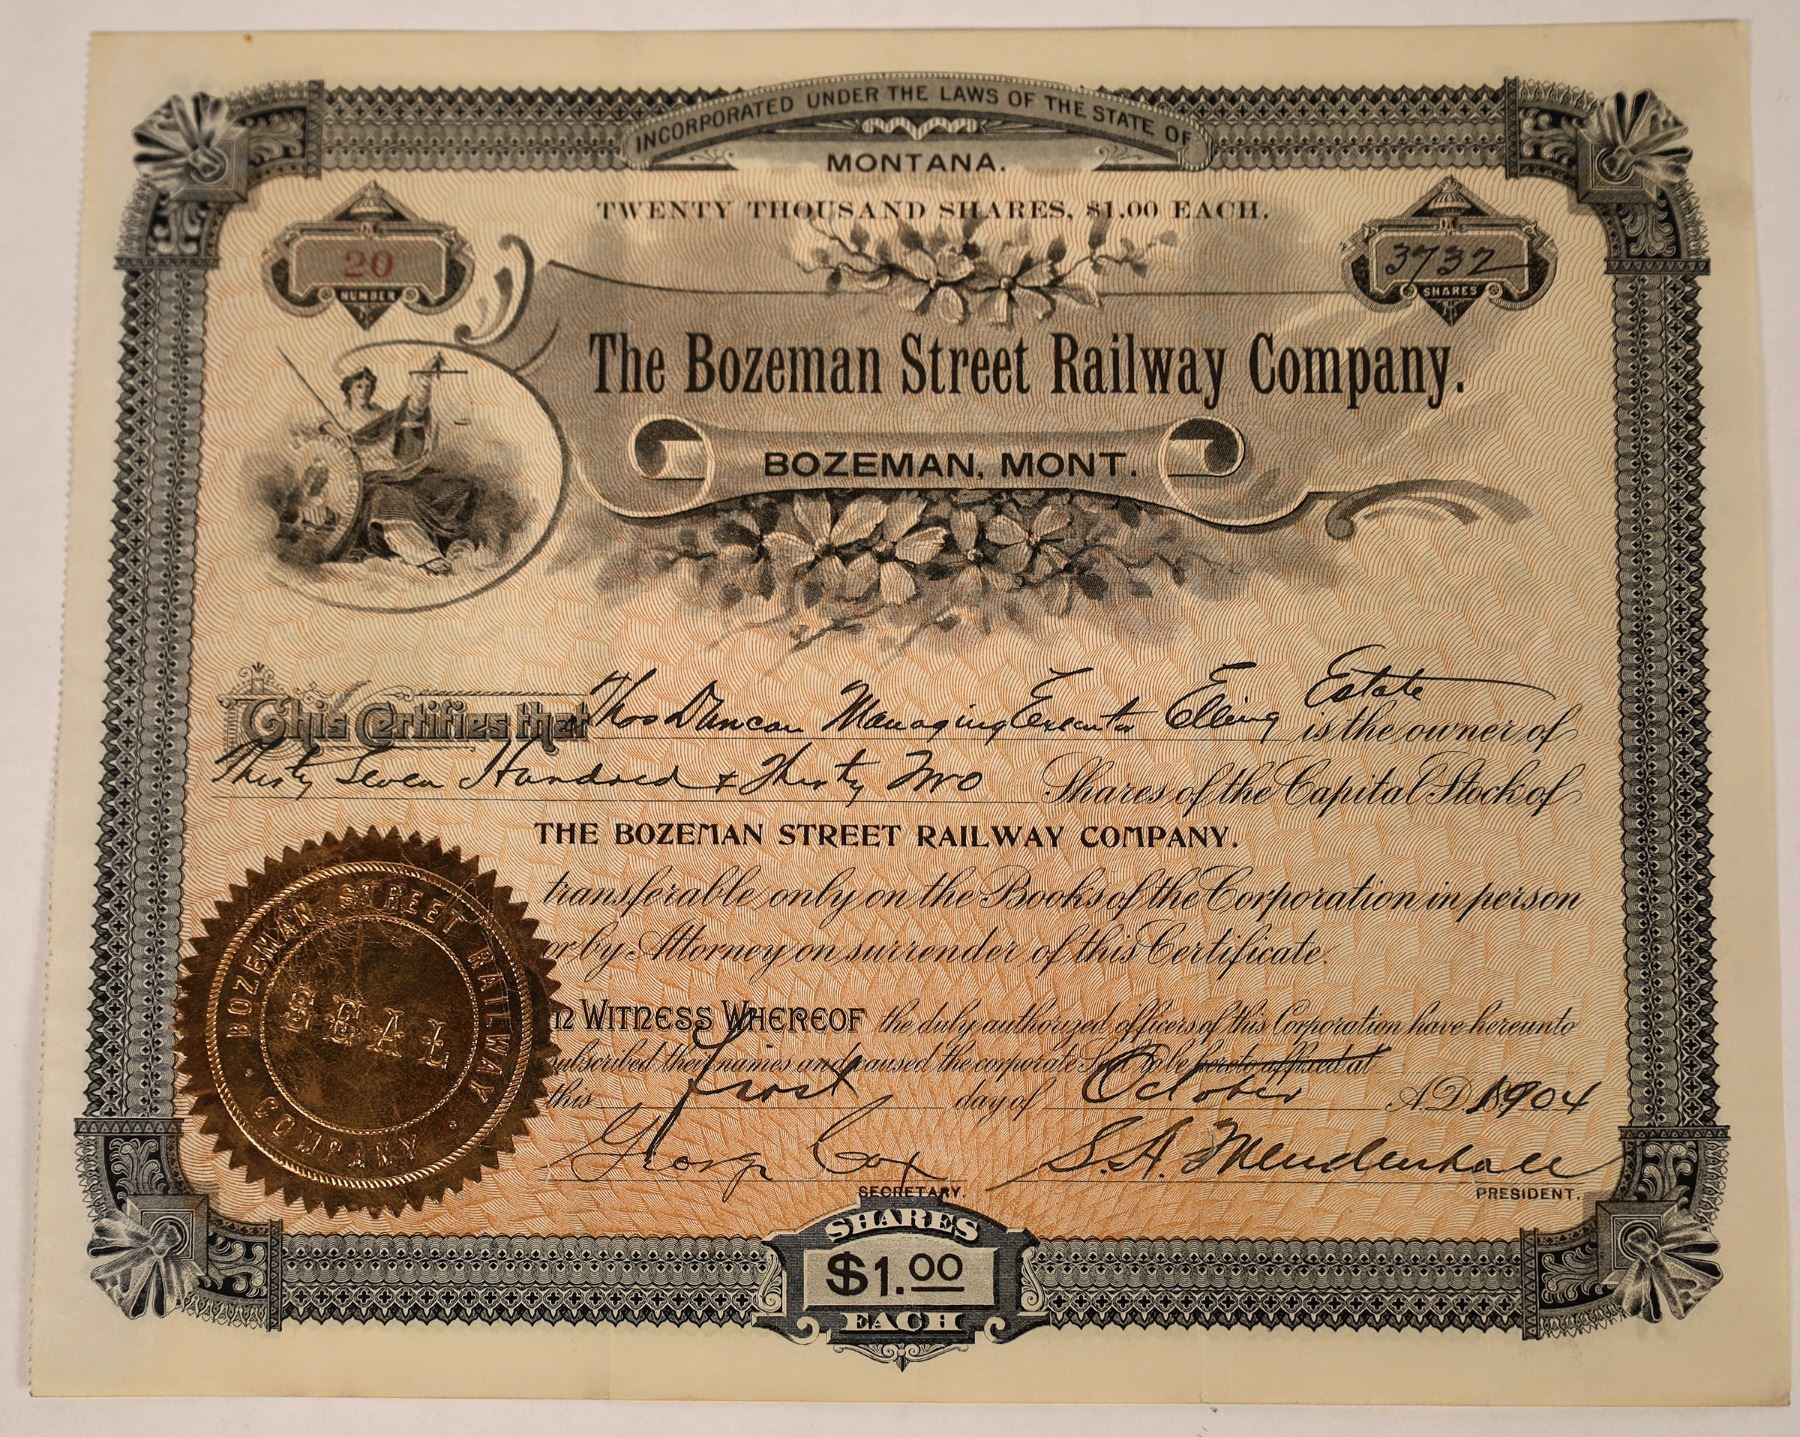 INCORPORATED UNDER THE LAWS OF THE STATE OF
MONTANA.
TWENTY THOUSAND SHARES, $1.00 EACH.
20
NUMBER
3732
SHARES
The Bozeman Street Railway Company.
BOZEMAN, MONT.
This Certifies that Thos Duncan Managing Executor Elling Estate is the owner of
Thirty Seven Hundred & Thirty Two Shares of the Capital Stock of
THE BOZEMAN STREET RAILWAY COMPANY.
transferable only on the Books of the Corporation in person
or by Attorney on surrender of this Certificate.
In Witness Whereof the duly authorized officers of this Corporation have hereunto
subscribed their names and caused the corporate Seal to be hereto affixed at
this First day of October A.D. 1904
George Cox S. A. Mendenhall
SECRETARY. PRESIDENT.
BOZEMAN STREET RAILWAY COMPANY
SEAL
SHARES
$1.00
EACH